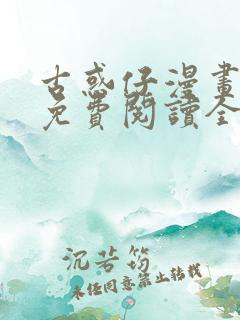 古惑仔漫畫
免費閱讀全
沉若筠
未經同意禁止轉載